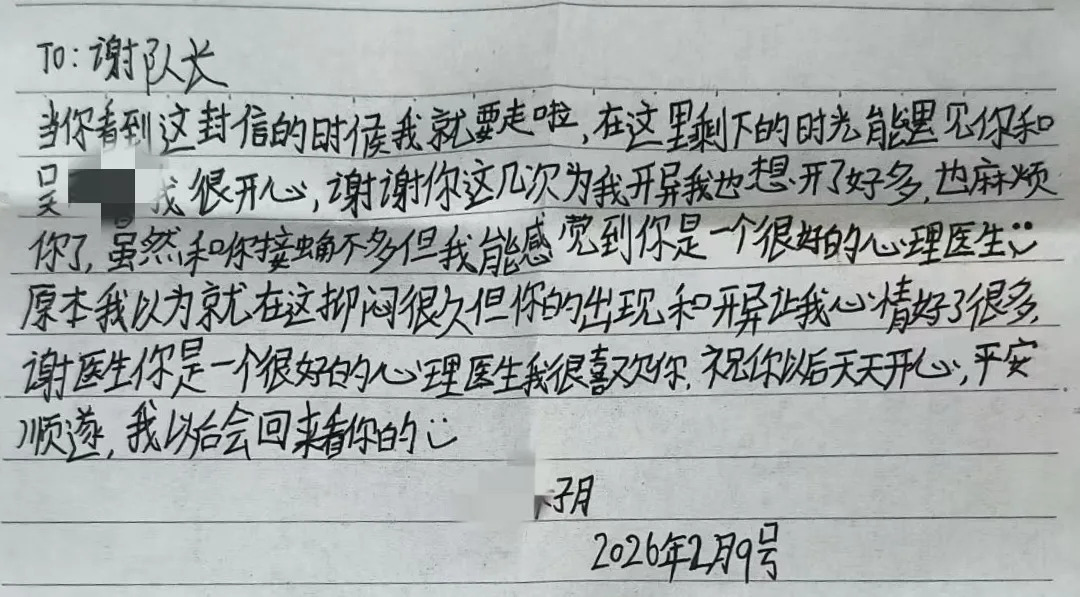 TO:谢队长
当你看到这封信的时候我就要走啦,在这里剩下的时光能遇见你和
吴 我很开心,谢谢你这几次为我开导我也想开了好多,也麻烦
你了,虽然和你接触不多但我能感觉到你是一个很好的心理医生
原本我以为就在这抑闷很久但你的出现和开导让我心情好了很多,
谢医生你是一个很好的心理医生我很喜欢你,祝你以后天天开心,平安
顺遂,我以后会回来看你的
子月
2026年2月9号